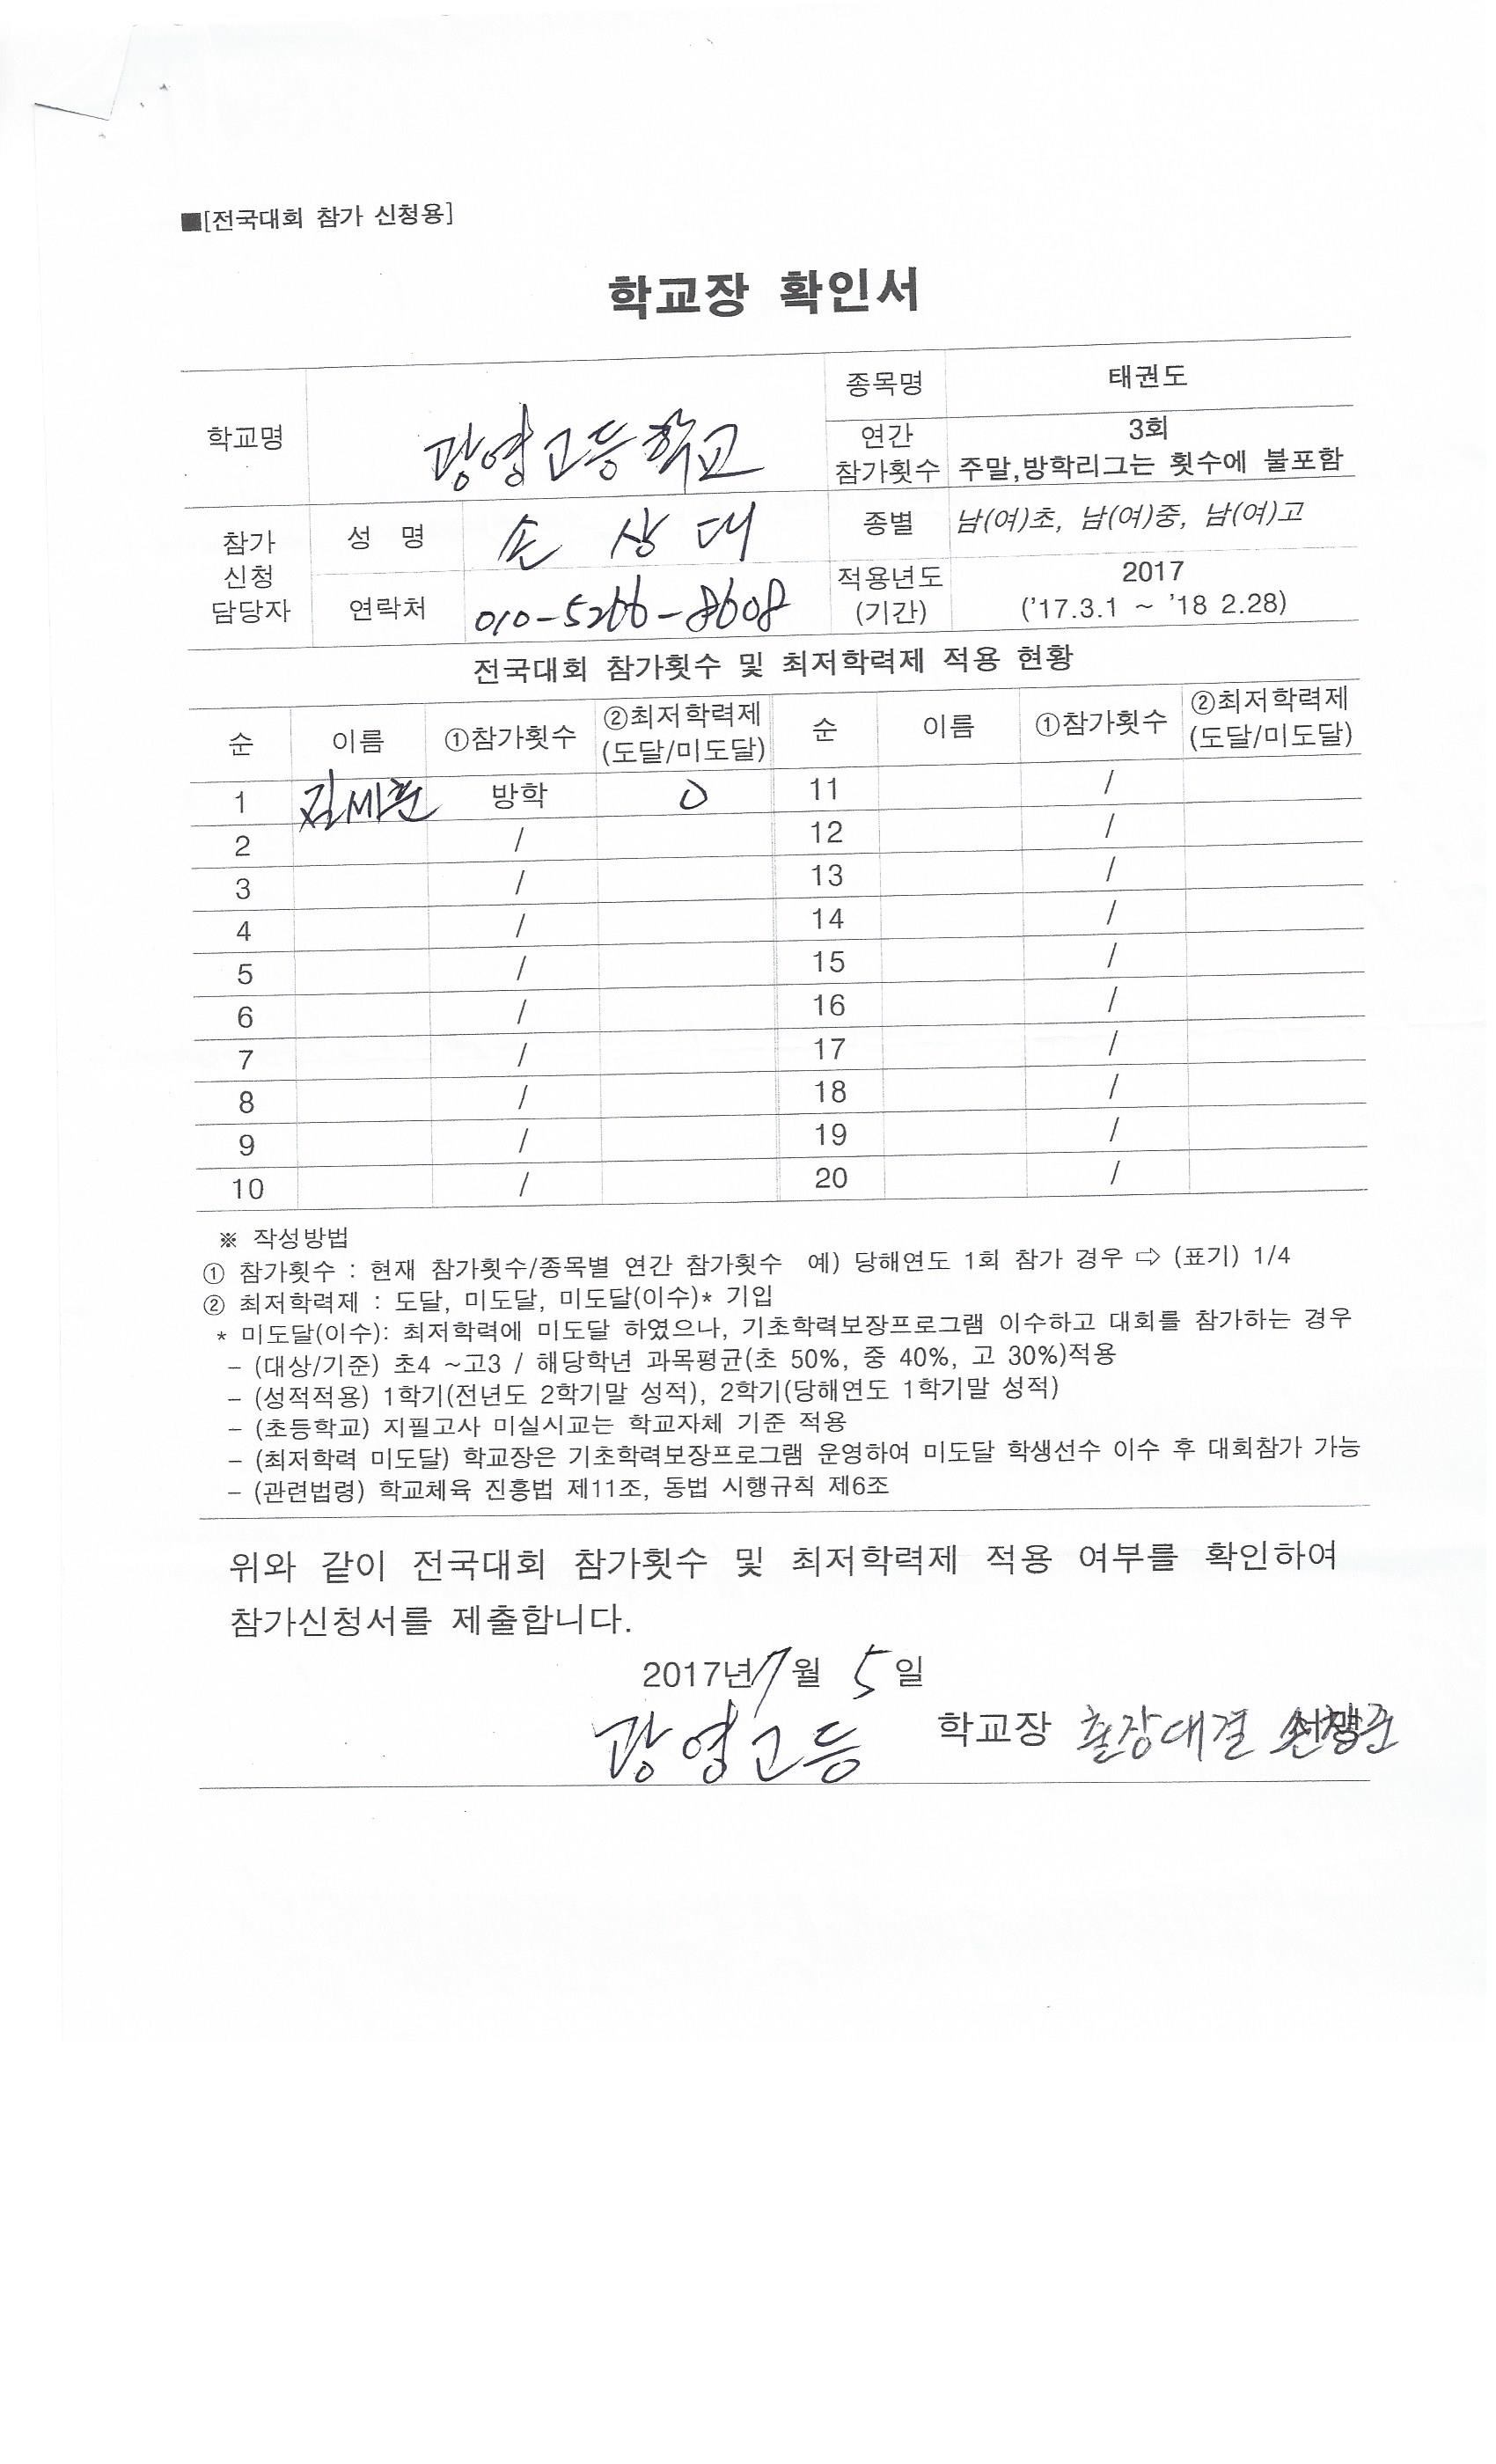 ■[전국대회 참가 신청용]
학교장 확인서
학교명 광영고등학교 종목명 태권도
연간 참가횟수 3회
주말,방학리그는 횟수에 불포함
참가 신청 담당자 성 명 손상대 종별 남(여)초, 남(여)중, 남(여)고
연락처 010-5266-8608 적용년도 (기간) 2017
('17.3.1 ~ '18 2.28)
전국대회 참가횟수 및 최저학력제 적용 현황
순 이름 ①참가횟수 ②최저학력제 (도달/미도달) 순 이름 ①참가횟수 ②최저학력제 (도달/미도달)
1 김세훈 방학 O 11 /
2 / 12 /
3 / 13 /
4 / 14 /
5 / 15 /
6 / 16 /
7 / 17 /
8 / 18 /
9 / 19 /
10 / 20 /
※ 작성방법
① 참가횟수 : 현재 참가횟수/종목별 연간 참가횟수 예) 당해연도 1회 참가 경우 ⇨ (표기) 1/4
② 최저학력제 : 도달, 미도달, 미도달(이수)* 기입
* 미도달(이수): 최저학력에 미도달 하였으나, 기초학력보장프로그램 이수하고 대회를 참가하는 경우
- (대상/기준) 초4 ~고3 / 해당학년 과목평균(초 50%, 중 40%, 고 30%)적용
- (성적적용) 1학기(전년도 2학기말 성적), 2학기(당해연도 1학기말 성적)
- (초등학교) 지필고사 미실시교는 학교자체 기준 적용
- (최저학력 미도달) 학교장은 기초학력보장프로그램 운영하여 미도달 학생선수 이수 후 대회참가 가능
- (관련법령) 학교체육 진흥법 제11조, 동법 시행규칙 제6조
위와 같이 전국대회 참가횟수 및 최저학력제 적용 여부를 확인하여
참가신청서를 제출합니다.
2017년 7월 5일
광영고등 학교장 출장대결